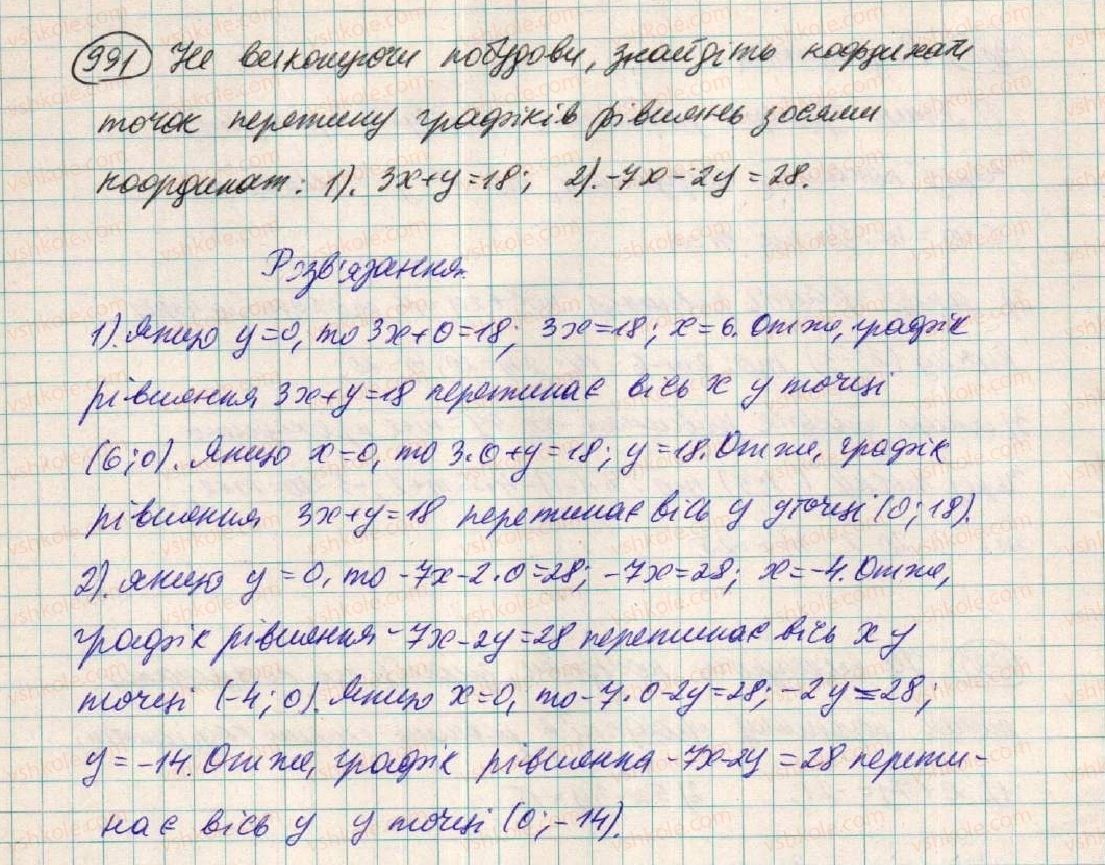 991 Не виконуючи побудови, знайдіть координати
точок перетину графіків рівнянь з осями
координат: 1). 3x+y=18; 2). -7x-2y=28.
Розв'язання.
1). Якщо y=0, то 3x+0=18; 3x=18; x=6. Отже, графік
рівняння 3x+y=18 перетинає вісь x у точці
(6;0). Якщо x=0, то 3·0+y=18; y=18. Отже, графік
рівняння 3x+y=18 перетинає вісь y у точці (0;18).
2). Якщо y=0, то -7x-2·0=28; -7x=28; x=-4. Отже,
графік рівняння -7x-2y=28 перетинає вісь x у
точці (-4;0). Якщо x=0, то -7·0-2y=28; -2y=28;
y=-14. Отже, графік рівняння -7x-2y=28 перети-
нає вісь y у точці (0;-14).